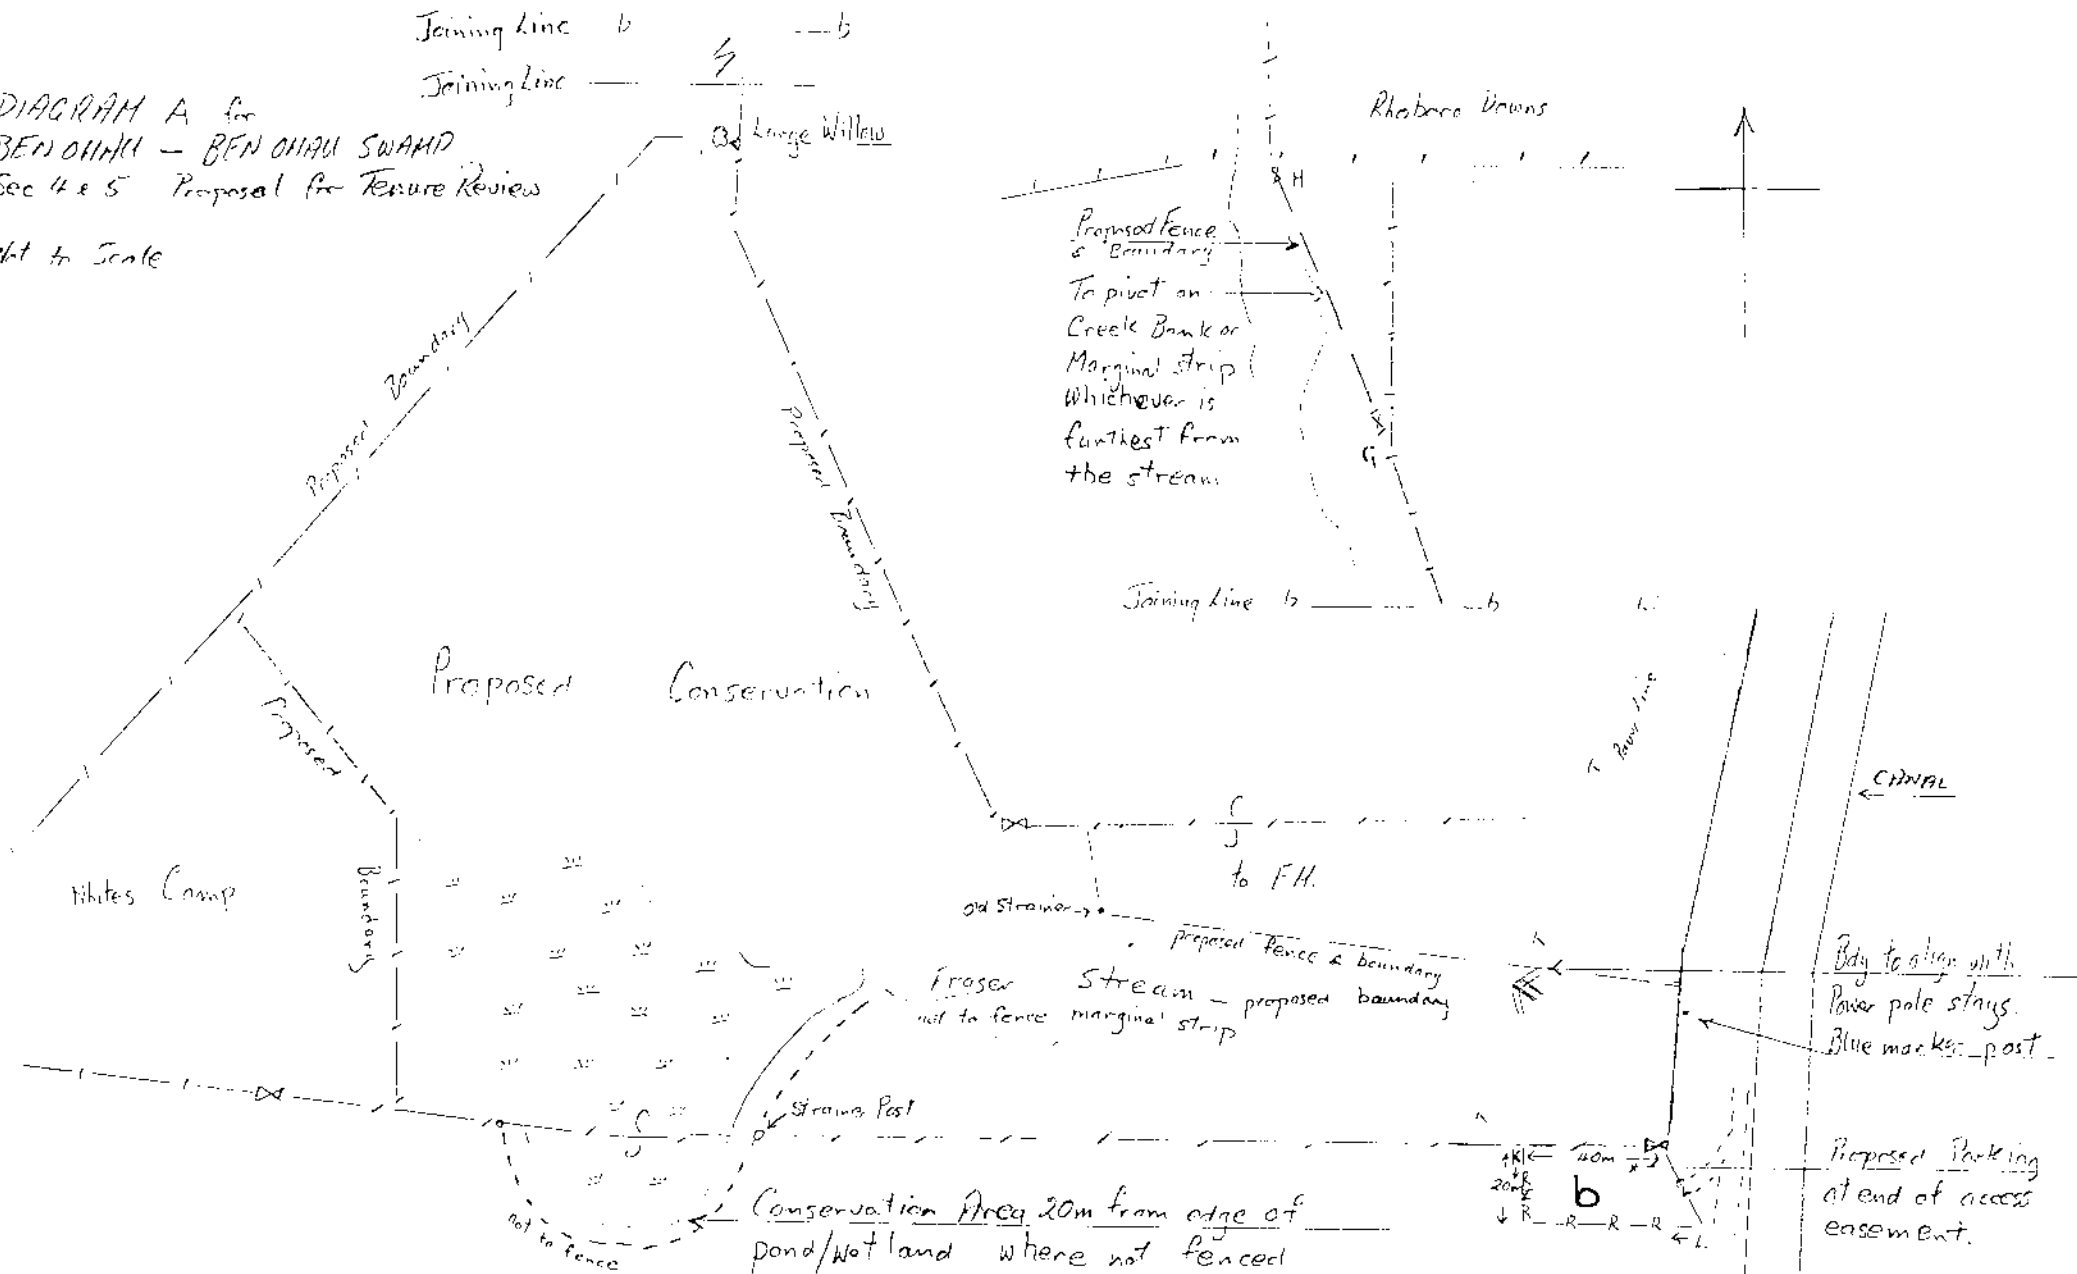 Joining Line b --- b
Joining Line
DIAGRAM A for
BEN OHAU - BEN OHAU SWAMP
Sec 4 & 5 Proposal for Tenure Review
Not to Scale
Large Willow
Rhoboro Downs
H
Proposed Fence
& Boundary
To pivot on
Creek Bank or
Marginal strip
Whichever is
furthest from
the stream
G
Joining Line b b
Proposed Boundary
Proposed Boundary
Proposed Boundary
Proposed Conservation
Power line
CANAL
Whites Camp
to F.H.
old Strainer
proposed fence & boundary
Fraser Stream - proposed boundary
not to fence marginal strip
Bdy to align with
Power pole stays.
Blue marker post
Strainer Post
40m
20m
b
R R R R
L
Proposed Parking
at end of access
easement.
not to fence
Conservation Area 20m from edge of
pond/wetland where not fenced